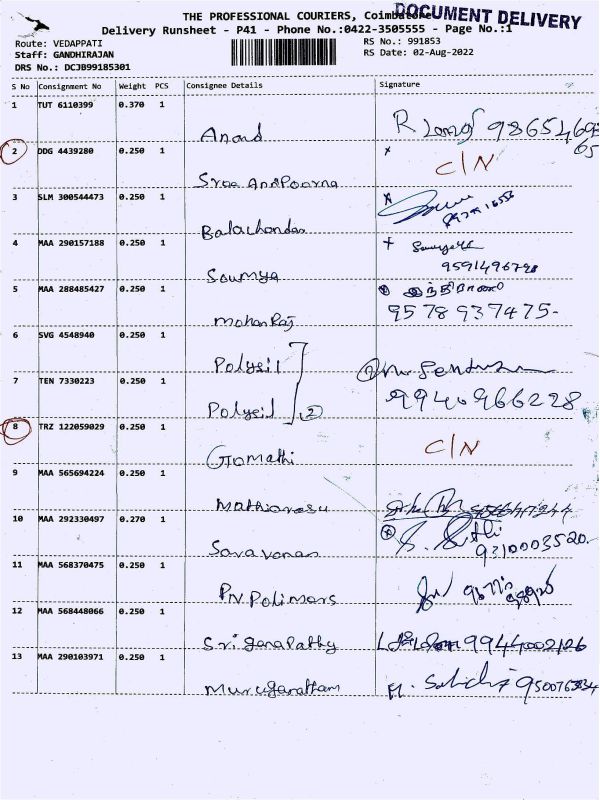 THE PROFESSIONAL COURIERS, Coimbatore
DOCUMENT DELIVERY
Delivery Runsheet - P41 - Phone No.:0422-3505555 - Page No.:1
Route: VEDAPPATI RS No.: 991853
Staff: GANDHIRAJAN RS Date: 02-Aug-2022
DRS No.: DCJB99185301
S No Consignment No Weight PCS Consignee Details Signature
1 TUT 6110399 0.370 1
Anand
2 DDG 4439280 0.250 1
C/N
Sree Annapoorna
3 SLM 300544473 0.250 1
Balachander
4 MAA 290157188 0.250 1
Soumya 9591496798
5 MAA 288485427 0.250 1
Mohan Raj 9578937475-
6 SVG 4548940 0.250 1
Polysil
7 TEN 7330223 0.250 1
9940966228
Polysil 2
8 TRZ 122059029 0.250 1
C/N
Gomathi
9 MAA 565694224 0.250 1
Mathiarasu
10 MAA 292330497 0.270 1
Saravanan 9310003520
11 MAA 568370475 0.250 1
PN Polimars
12 MAA 568448066 0.250 1
Sri ganapathy 9944002126
13 MAA 290103971 0.250 1
Muruganatham